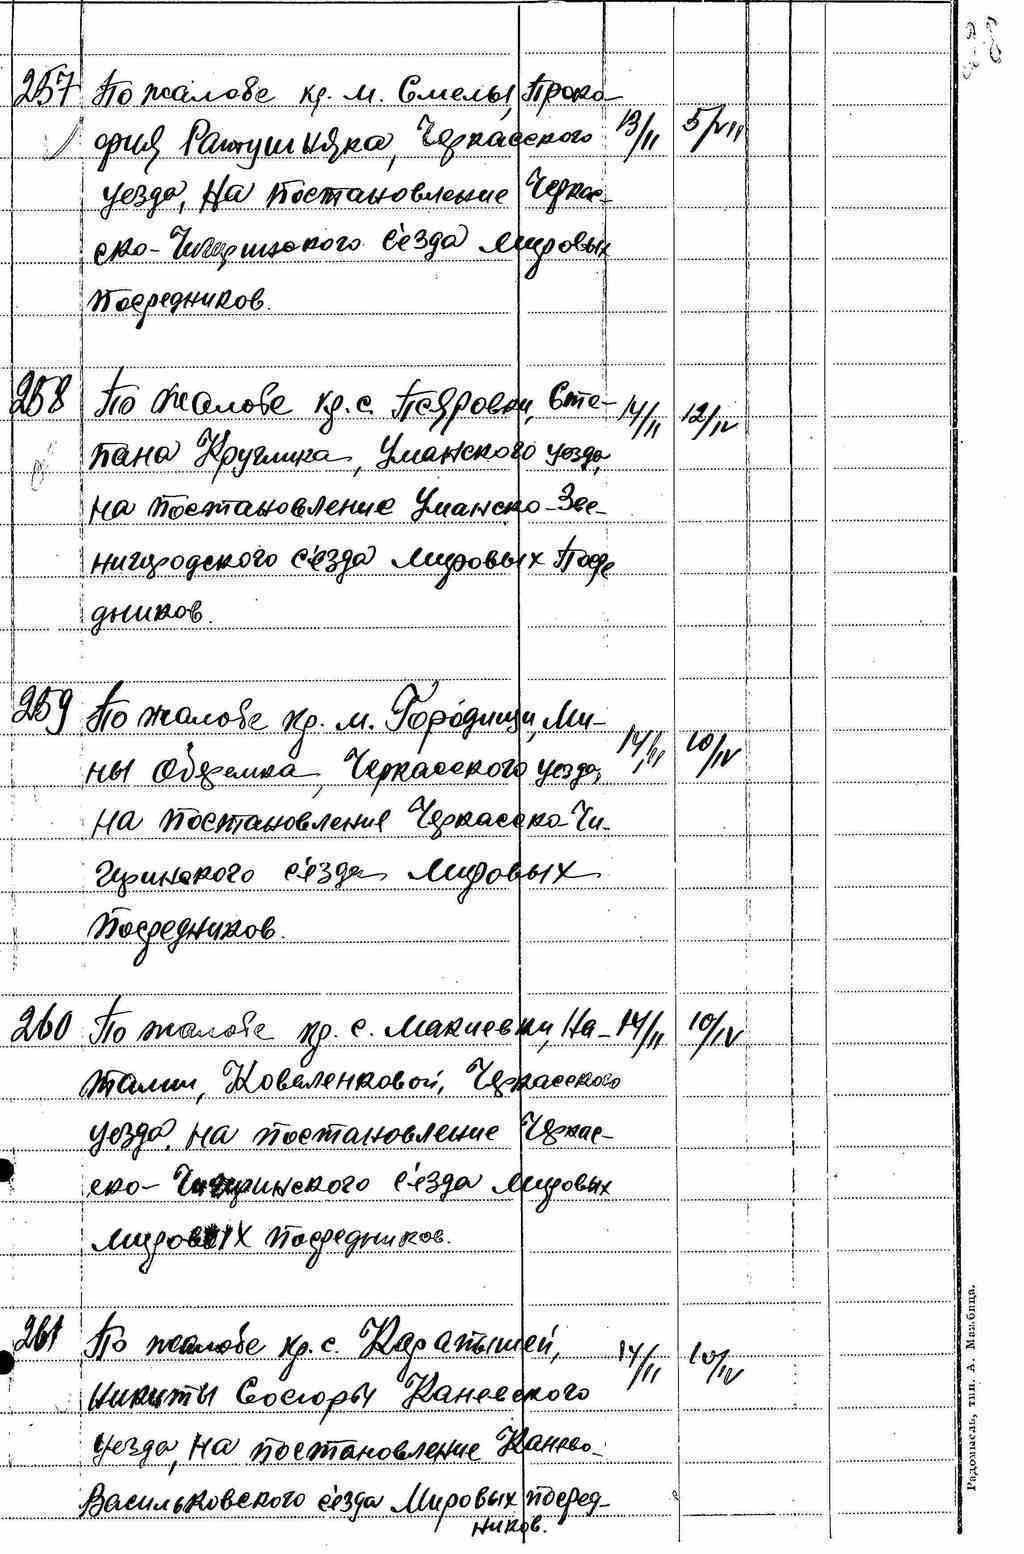 257 По жалобе кр. м. Смелы, Проко- 13/II 5/VII
фия Ратушняка, Черкасского
уезда, на постановление Черкас-
ско-Чигиринского с'езда мировых
посредников.
258 По жалобе кр. с. Псяровки, Сте- 14/II 12/IV
пана Круглика, Уманского уезда,
на постановление Уманско-Зве-
нигородского с'езда мировых Посре
дников.
259 По жалобе кр. м. Городищи, Ми- 14/II 10/IV
ны Обремка, Черкасского уезда,
на постановление Черкасско-Чи-
гиринского с'езда Мировых
посредников.
260 По жалобе кр. с. Макиевки, На- 14/II 10/IV
талии, Коваленковой, Черкасского
уезда, на постановление Черкас-
ско-Чигиринского с'езда мировых
мировых посредников.
261 По жалобе кр. с. Карапышей, 14/II 10/IV
Никиты Сосюры Каневского
уезда, на постановление Канево-
Васильковского с'езда Мировых посред-
ников.
Радомысль, тип. А. Магбица.